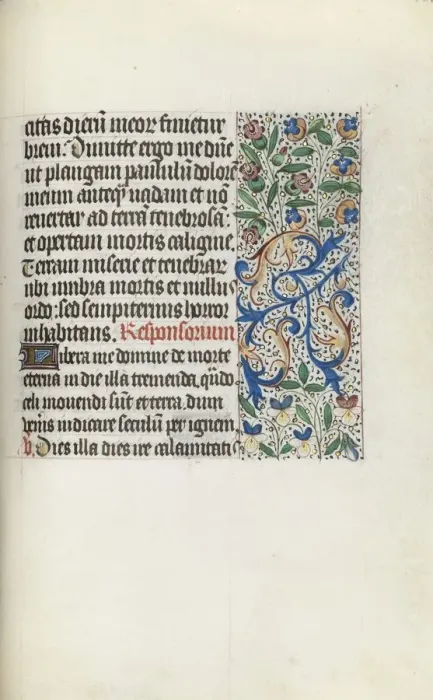 citas dierū meoꝝ finietur
breui. Dimitte ergo me dñe
ut plangam paululū dolorē
meum anteqͣ uadam et nō
reuertar ad terrā tenebrosā:
et opertam mortis caligine.
Terram miserie et tenebraꝝ
ubi umbra mortis et nullus
ordo: sed sempiternus horror
inhabitans. Responsorium
Libera me domine de morte
eterna in die illa tremenda. qñdo
celi mouendi sūt et terra. dum
veneris iudicare seculū per ignem.
℣. Dies illa dies ire calamitatis